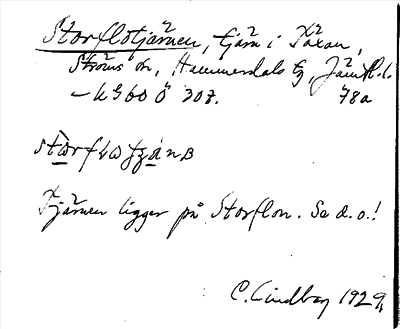 Storflotjärnen, tjärn i Täxan,
Ströms sn, Hammerdals tg, Jämtl. l.
– kGbo Ö 307. 78a
Tjärnen ligger på Storflon. Se d.o.!
C. Lindberg 1929